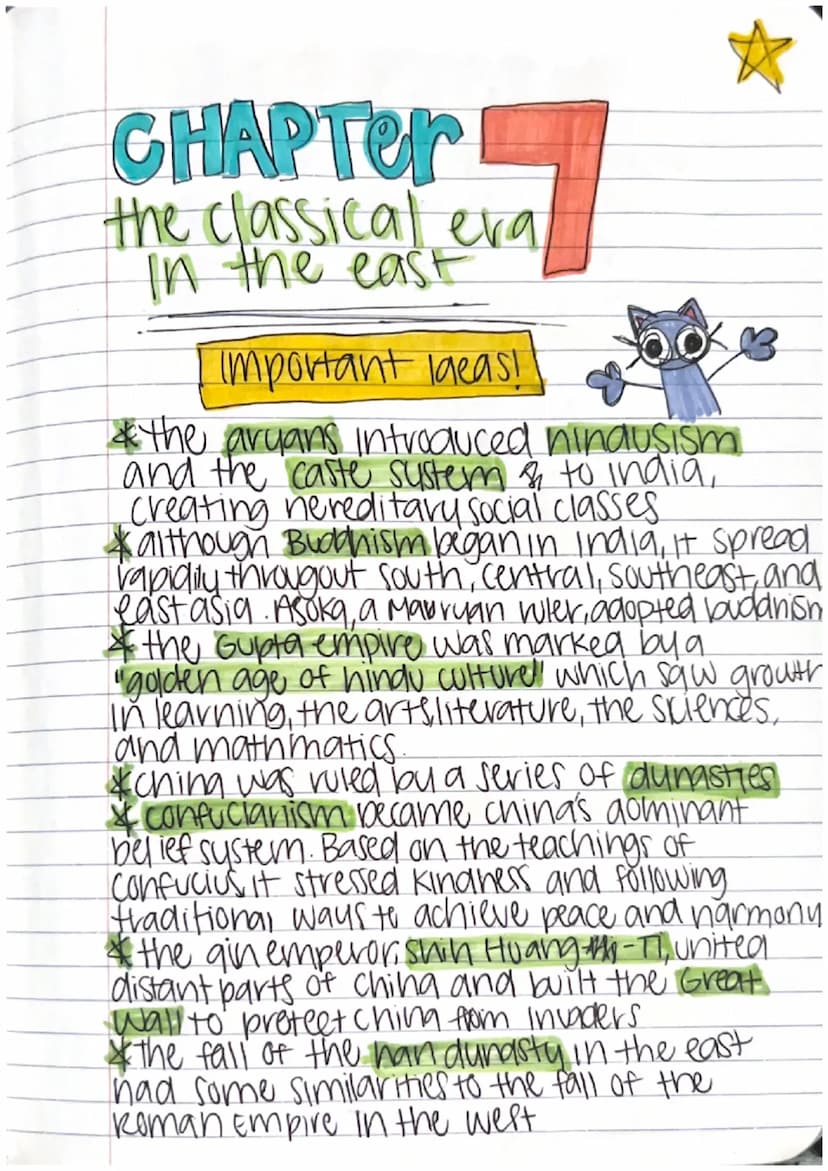 CHAPTer 7
the classical era
in the east
important ideas!
*the aryans introduced hindusism
and the caste system & to india,
creating hereditary social classes
*although Buddhism began in india, it spread
rapidily througout south, central, southeast, and
east asia. Asoka, a Mauryan ruler, adopted buddhism
*the Gupta empire was marked by a
"golden age of hindu culture" which saw growth
in learning, the arts, literature, the sciences,
and mathmatics.
*china was ruled by a series of dynasties
*confucianism became china's dominant
belief system. Based on the teachings of
confucius, it stressed kindness and following
traditional ways to achieve peace and harmony
*the qin emperor, Shih Huang-Ti, united
distant parts of china and built the Great
Wall to protect china from invaders
*the fall of the han dynasty in the east
had some similarities to the fall of the
Roman Empire in the west